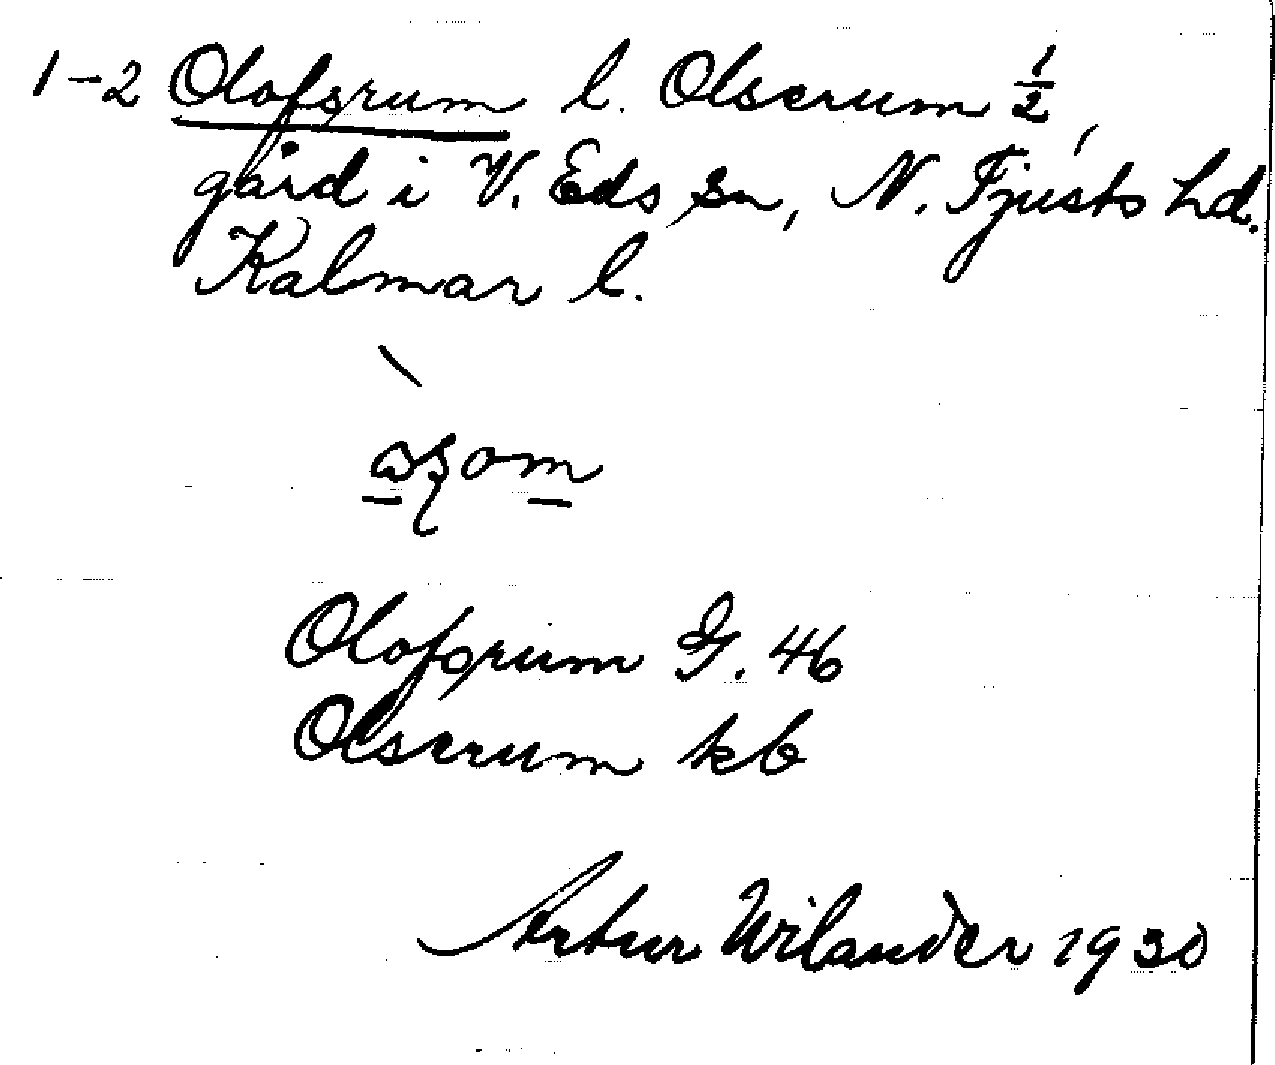 1-2 Olofsrum l. Olserum ½,
gård i V. Eds sn, N. Tjusts hd.
Kalmar l.
Olofsrum G. 46
Olserum kb
Artur Wilander 1930